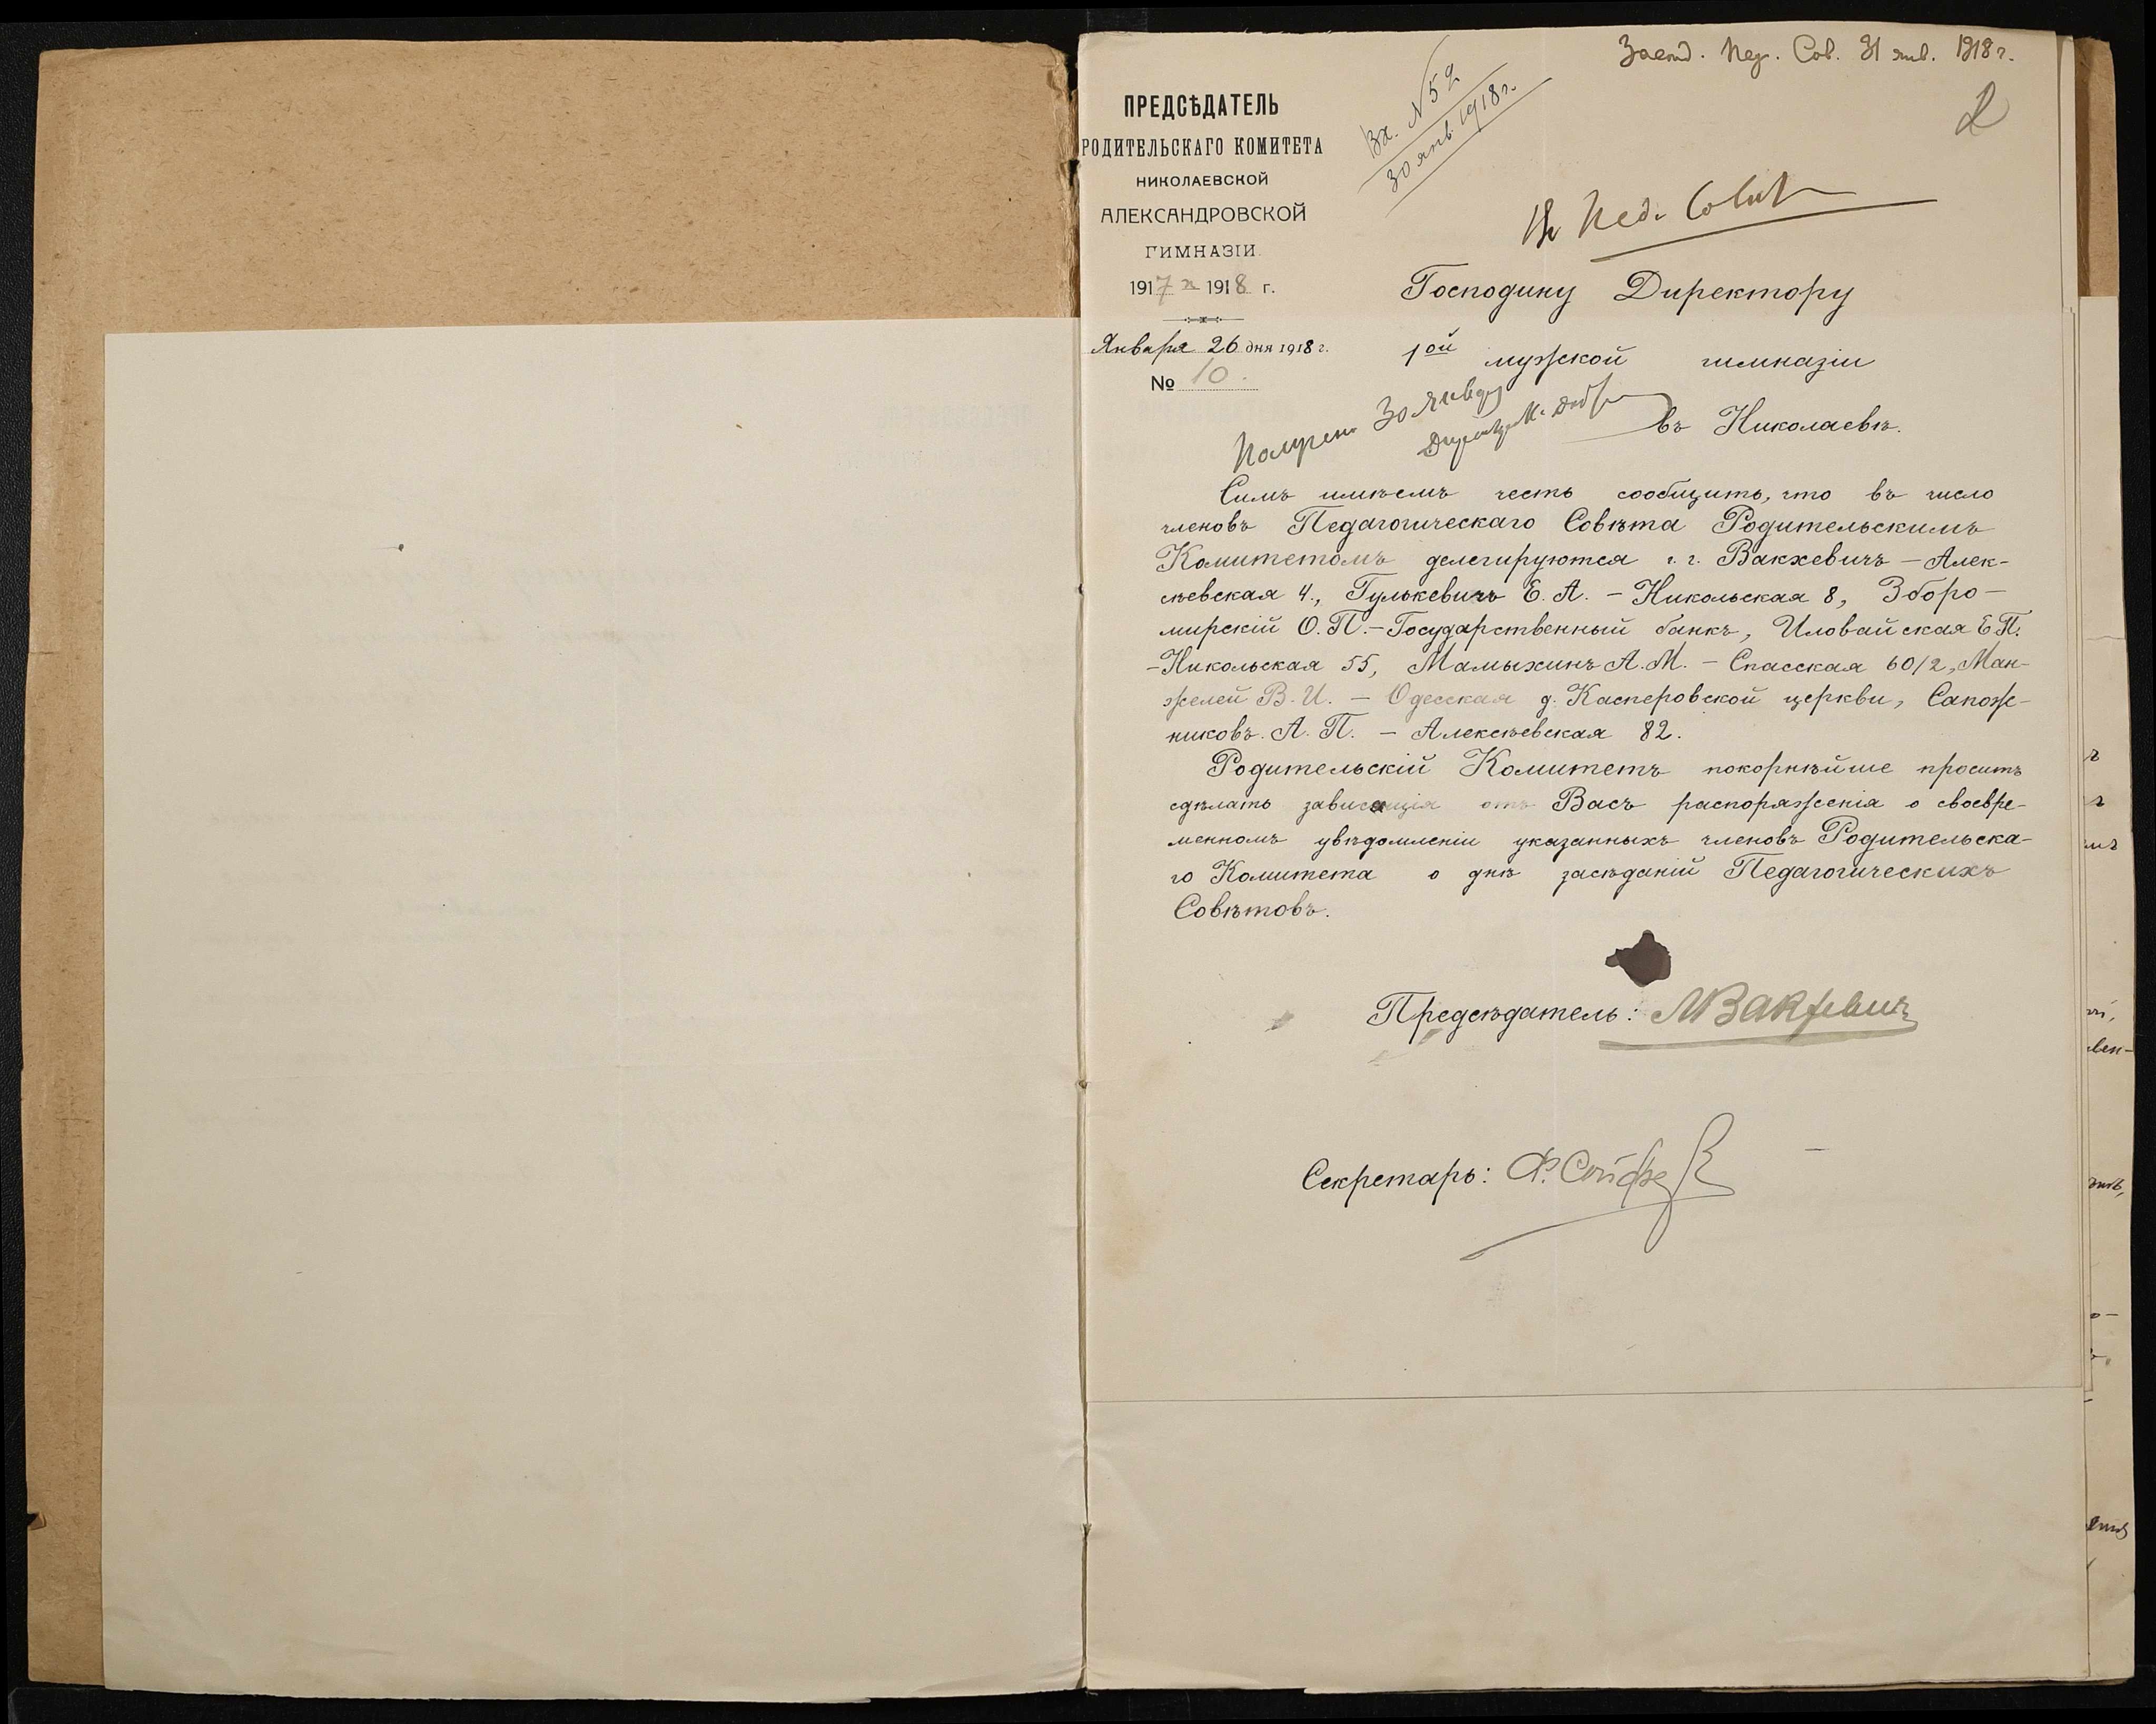 Засѣд. Пед. Сов. 31 янв. 1918 г.
2
Вх. №52
30 янв. 1918 г.
Въ Пед. Совѣтъ
ПРЕДСѢДАТЕЛЬ
РОДИТЕЛЬСКАГО КОМИТЕТА
НИКОЛАЕВСКОЙ
АЛЕКСАНДРОВСКОЙ
ГИМНАЗІИ.
1917-1918 г.
Января 26 дня 1918 г.
№ 10.
Господину Директору
1ой мужской гимназіи
въ Николаевѣ.
Получено 30 Января
Директоръ
Симъ имѣемъ честь сообщить, что въ число
членовъ Педагогическаго Совѣта Родительскимъ
Комитетомъ делегируются г.г. Вакхевичъ – Алек-
сѣевская 4., Гулькевичъ Е. А. – Никольская 8, Зборо-
мирскій О. П. – Государственный банкъ, Иловайская Е. П.
– Никольская 55, Мамыкинъ А. М. – Спасская 60/2, Ман-
желей В. И. – Одесская д. Касперовской церкви, Сапож-
никовъ. А. П. – Алексѣевская 82.
Родительскій Комитетъ покорнѣйше проситъ
сдѣлать зависящія отъ Васъ распоряженія о своевре-
менномъ увѣдомленіи указанныхъ членовъ Родительска-
го Комитета о днѣ засѣданій Педагогическихъ
Совѣтовъ.
Предсѣдатель: МВакхевичъ
Секретарь: